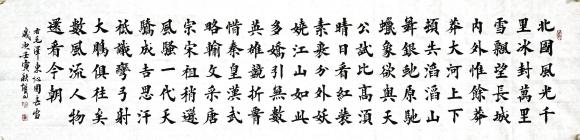 北國風光千
里冰封萬里
雪飄望長城
內外惟餘莽
莽大河上下
頓失滔滔山
舞銀蛇原馳
蠟象欲與天
公試比高須
晴日看紅裝
素裹分外妖
嬈江山如此
多嬌引無數
英雄競折腰
惜秦皇漢武
略輸文采唐
宗宋祖稍遜
風騷一代天
驕成吉思汗
祗識彎弓射
大鵰俱往矣
數風流人物
還看今朝
毛澤東沁園春雪